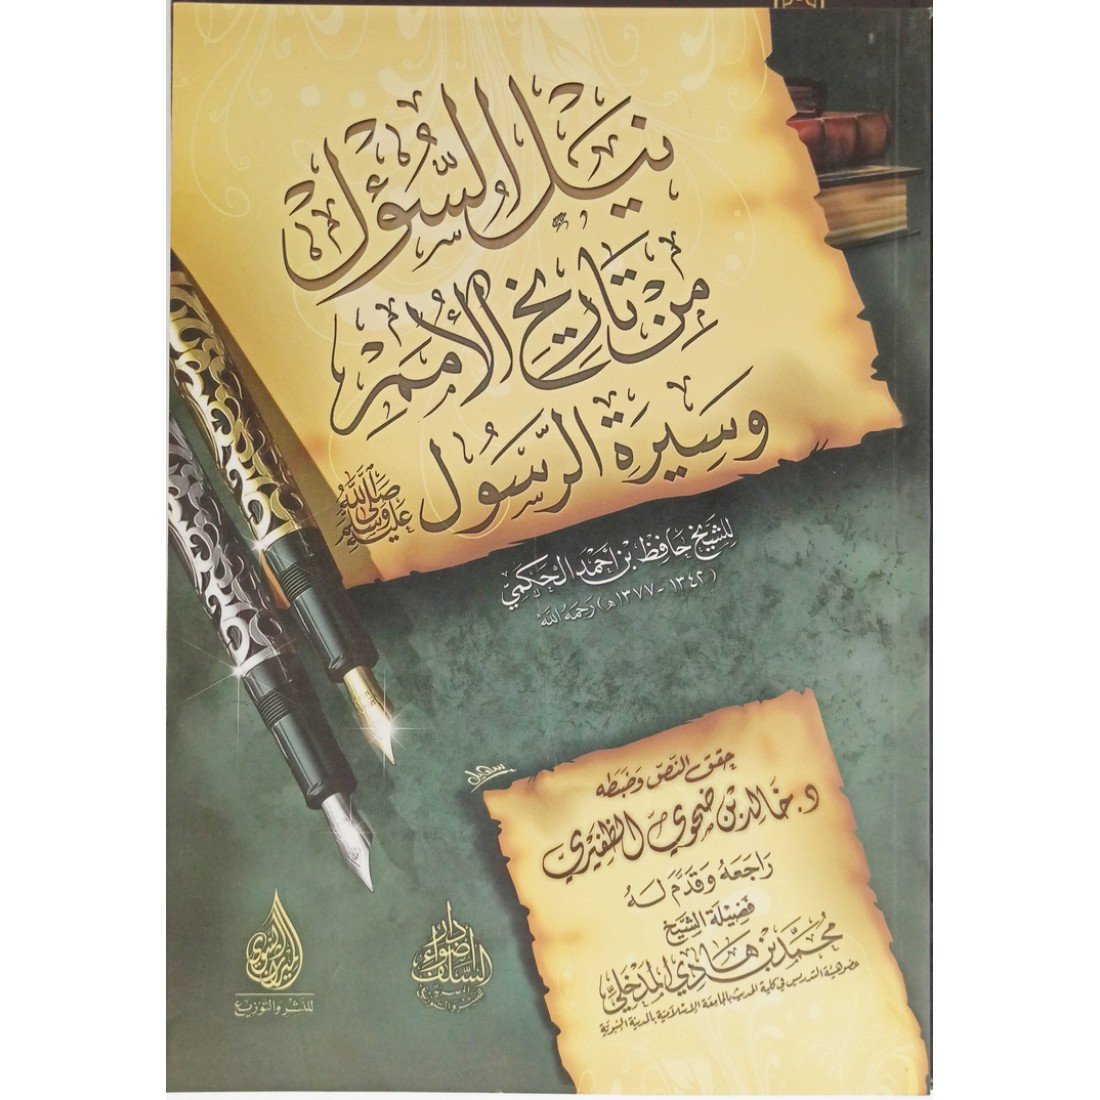 نيل السُّؤْل
مِنْ تَارِيخ الأُمَمِ
وَسِيرَة الرَّسُول
صَلَّى اللَّهُ عَلَيْهِ وَسَلَّمَ
لِلشَّيْخ حَافِظ بْن أحْمَد الحَكَمِيّ
(١٣٤٢ - ١٣٧٧هـ) رَحِمَهُ اللَّهُ
حقق النّصّ وَضَبَطَه
د. خَالِد بْن ضَحَوِي الظَّفِيرِيّ
رَاجَعَهُ وَقَدَّمَ لَهُ
فَضِيلَة الشَّيْخ
مُحَمَّد بْن هَادِي المَدْخَلِيّ
عضو هيئة التدريس في كلية الحديث بالجامعة الإسلامية بالمدينة النبوية
دار
أضواء
السلف
المصرية
للنشر والتوزيع
الميراث النبوي
للنشر والتوزيع